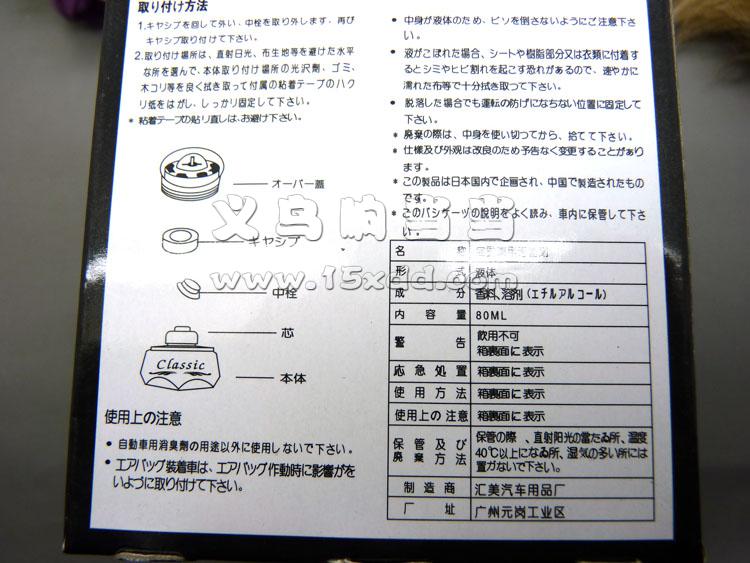 取り付け方法
1.キヤシプを回して外い、中栓を取り外します、再び
キヤシプ取り付けて下い。
2.取り付け場所は、直射日光、布生地等を避けた水平
な所を選んで、本体取り付け場所の光沢剤、ゴミ、
木コリ等を良く拭き取って付属の粘着テープのハク
リ低をはがし、しっかリ固定して下さい。
* 粘着テープの貼リ直しは、お避け下さい。
オーバー蓋
キヤシプ
中栓
芯
Classic
本体
使用上の注意
● 自動車用消臭剤の用途以外に使用しないで下さい。
● エアバッグ装着車は、エアバッグ作動時に影響がを
いよづに取り付けて下さい。
• 中身が液体のため、ビソを倒さないようにご注意下さ
い。
• 液がこぼれた場合、シートや樹脂部分又は衣類に付着す
るとシミやヒビ割れを起こす恐れがあるので、速やかに
濡れた布等で十分拭き取って下さい。
• 脱落した場合でも運転の防げにならない位置に固定して
下さい。
* 廃棄の際は、中身を使い切つてから、捨てて下さい。
* 仕様及び外観は改良のため予告なく変更することがあり
ます。
* この製品は日本国内で企画され、中国で製造されたもの
です。
* このパシザーツの說明をよく読み、車内に保管して下さ
い。
义乌响当当
www.15xdd.com
名 称
形 式 液体
成 分 香料、溶剤(エチルアルコール)
内容量 80ML
警 告 飲用不可
箱裏面に表示
応急処置 箱裏面に表示
使用方法 箱裏面に表示
使用上の注意 箱裏面に表示
保管及び
廃棄方法
保管の際、直射阳光の當たゐ所、温度
40℃以上になゐ所、湿気の多い所には
置がないで下さい。
制造商 汇美汽车用品厂
厂址 广州元岗工业区